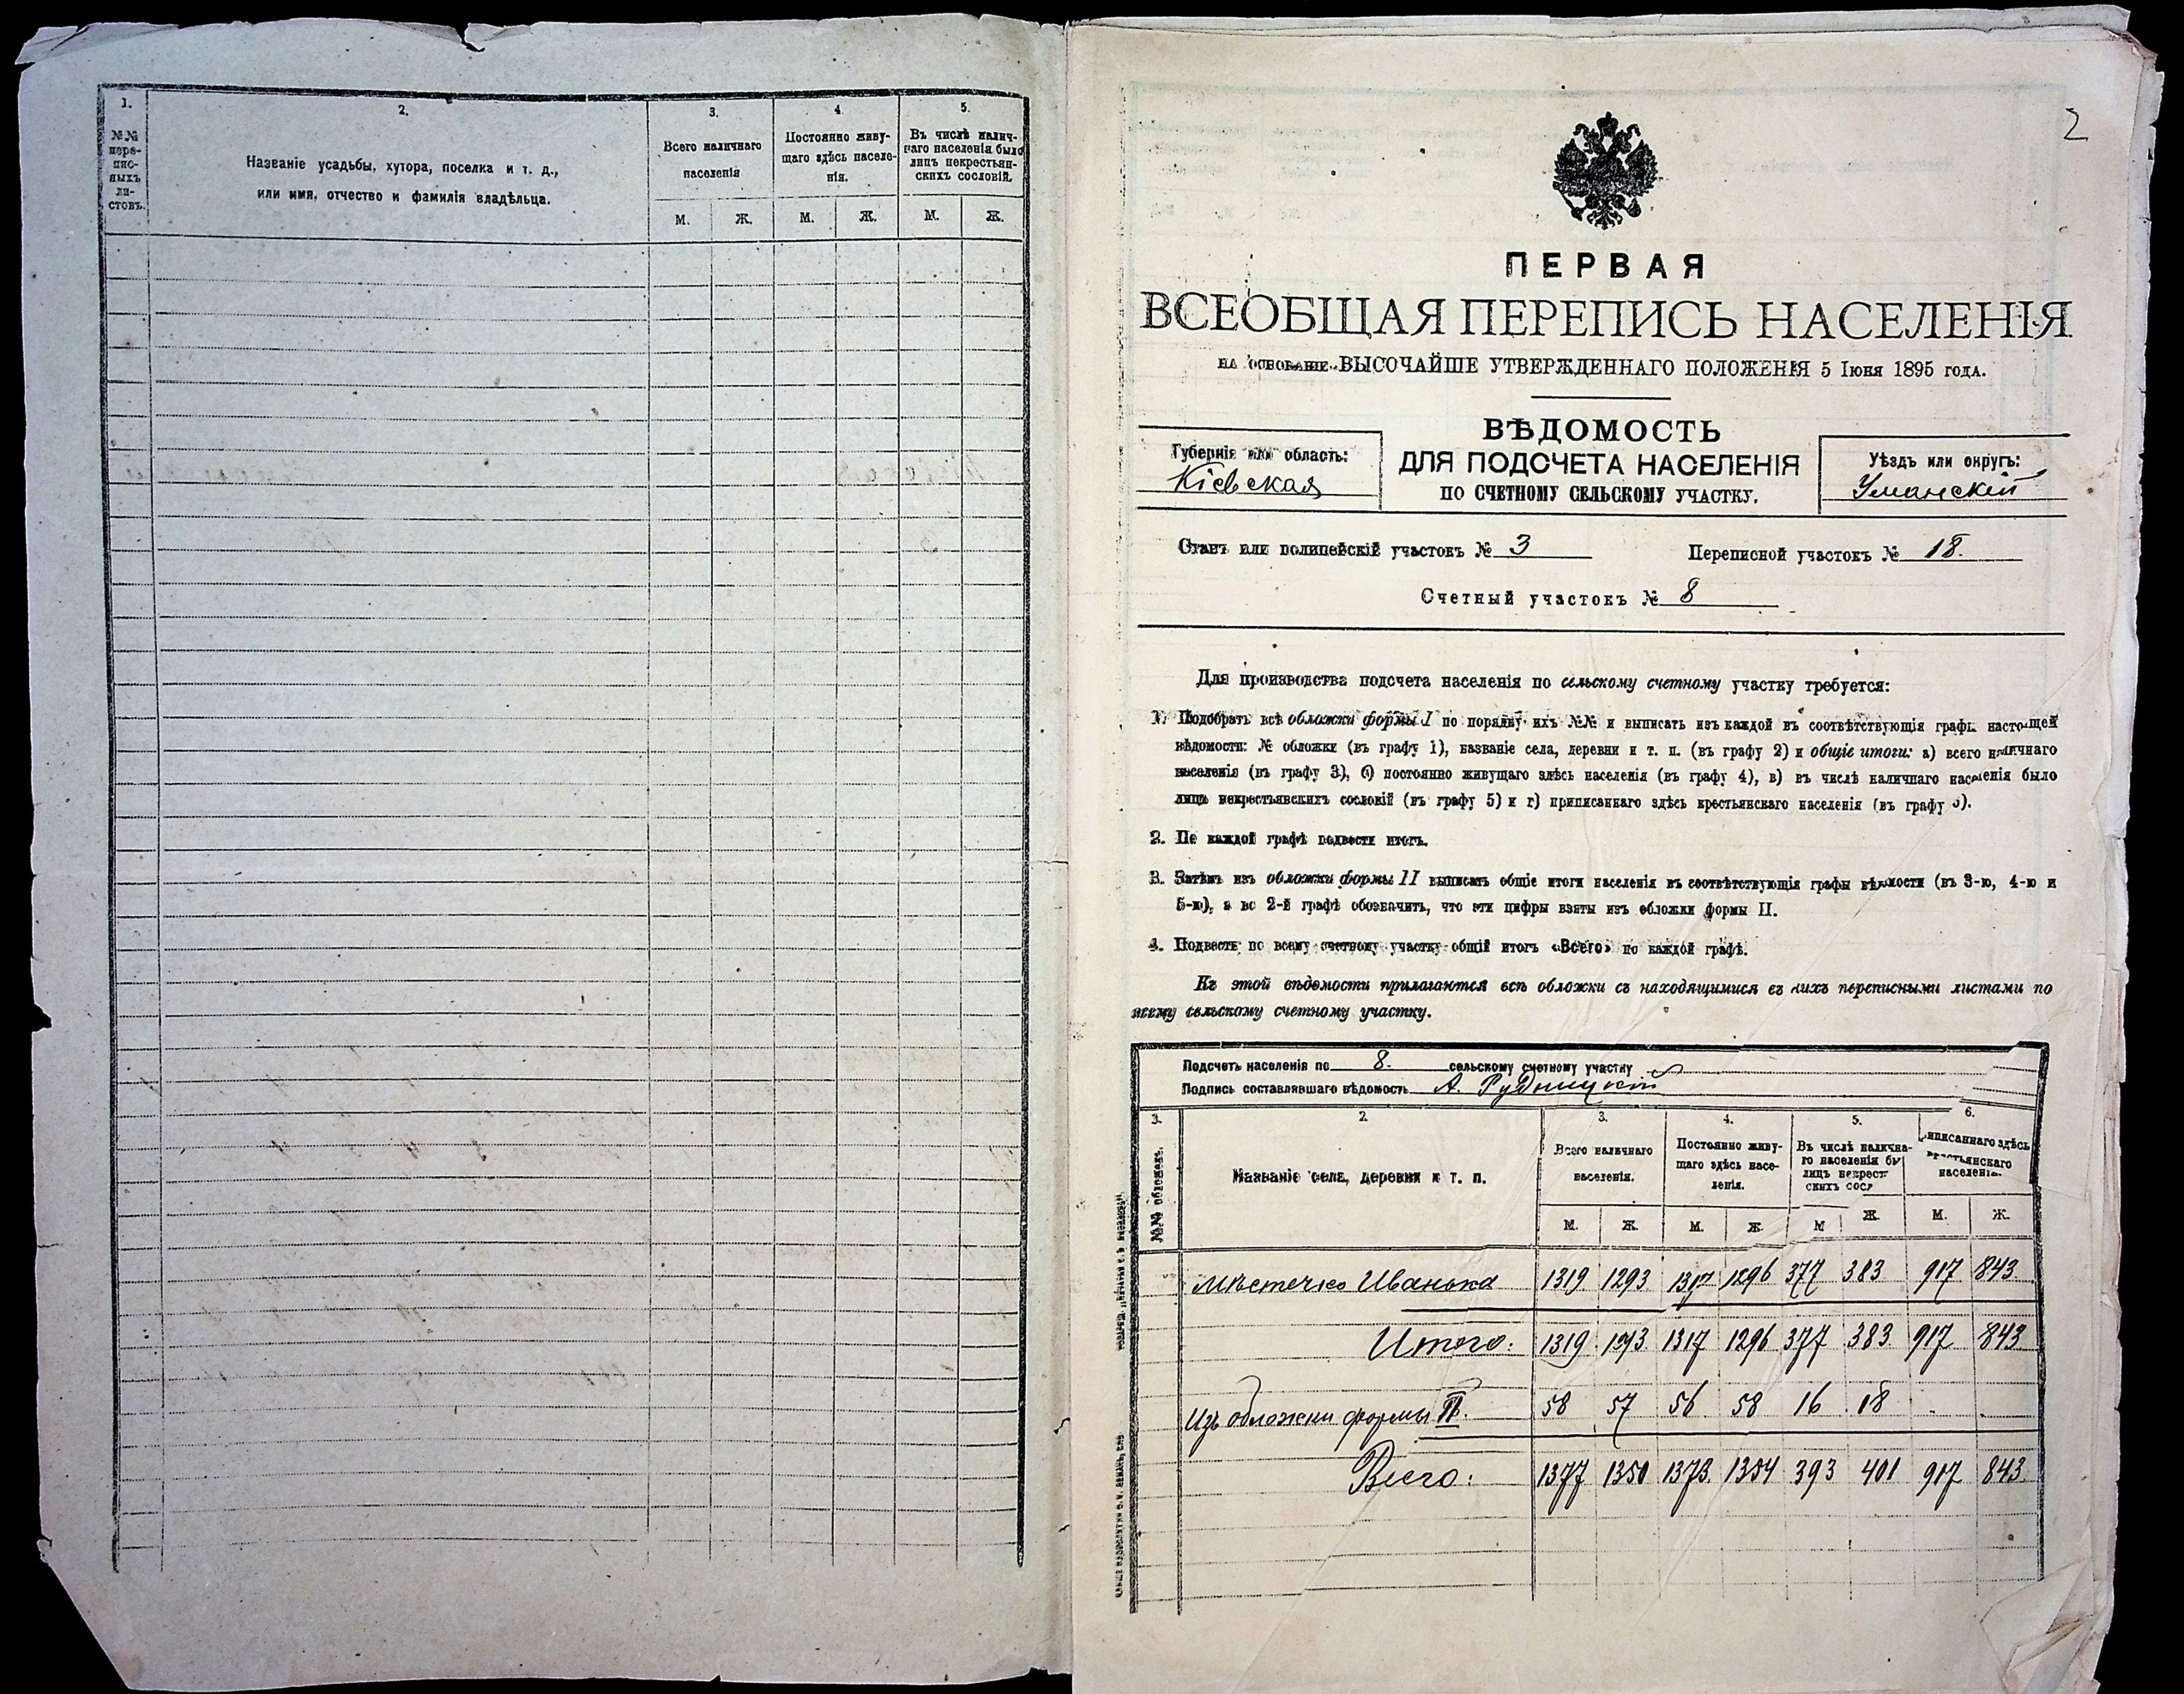 1.
№№ пере-
пис-
ныхъ
ли-
стовъ.
2.
Названіе усадьбы, хутора, поселка и т. д.,
или имя, отчество и фамилія владѣльца.
3.
Всего наличнаго
населенія
М. Ж.
4.
Постоянно живу-
щаго здѣсь населе-
нія.
М. Ж.
5.
Въ числѣ налич-
наго населенія было
лицъ некрестьян-
скихъ сословій.
М. Ж.
2
ПЕРВАЯ
ВСЕОБЩАЯ ПЕРЕПИСЬ НАСЕЛЕНІЯ
НА ОСНОВАНІИ ВЫСОЧАЙШЕ УТВЕРЖДЕННАГО ПОЛОЖЕНІЯ 5 Іюня 1895 года.
ВѢДОМОСТЬ
ДЛЯ ПОДСЧЕТА НАСЕЛЕНІЯ
ПО СЧЕТНОМУ СЕЛЬСКОМУ УЧАСТКУ.
Губернія или область:
Кіевская
Уѣздъ или округъ:
Уманскій
Станъ или полицейскій участокъ № 3
Переписной участокъ № 18.
Счетный участокъ № 8
Для производства подсчета населенія по сельскому счетному участку требуется:
1. Подобрать всѣ обложки формы I по порядку ихъ №№ и выписать изъ каждой въ соотвѣтствующія графы настоящей
вѣдомости: № обложки (въ графу 1), названіе села, деревни и т. п. (въ графу 2) и общіе итоги: а) всего наличнаго
населенія (въ графу 3), б) постоянно живущаго здѣсь населенія (въ графу 4), в) въ числѣ наличнаго населенія было
лицъ некрестьянскихъ сословій (въ графу 5) и г) приписаннаго здѣсь крестьянскаго населенія (въ графу 6).
2. По каждой графѣ подвести итогъ.
3. Затѣмъ изъ обложки формы II выписать общіе итоги населенія въ соотвѣтствующія графы вѣдомости (въ 3-ю, 4-ю и
5-ю), а во 2-й графѣ обозначить, что эти цифры взяты изъ обложки формы II.
4. Подвесть по всему счетному участку общій итогъ «Всего» по каждой графѣ.
Къ этой вѣдомости прилагаются всѣ обложки съ находящимися въ нихъ переписными листами по
всему сельскому счетному участку.
Подсчетъ населенія по 8. сельскому счетному участку
Подпись составлявшаго вѣдомость А. Рудницкій
№№ обложекъ.
2.
Названіе села, деревни и т. п.
3.
Всего наличнаго
населенія.
М. Ж.
4.
Постоянно живу-
щаго здѣсь насе-
ленія.
М. Ж.
5.
Въ числѣ налична-
го населенія бы
лицъ некрест
скихъ сос
М Ж.
6.
приписаннаго здѣсь
крестьянскаго
населенія.
М. Ж.
Мѣстечко Иванька 1319 1293 1317 1296 377 383 917 843
Итого: 1319 1293 1317 1296 377 383 917 843
Изъ обложки формы II. 58 57 56 58 16 18 . .
Всего: 1377 1350 1373 1354 393 401 917 843